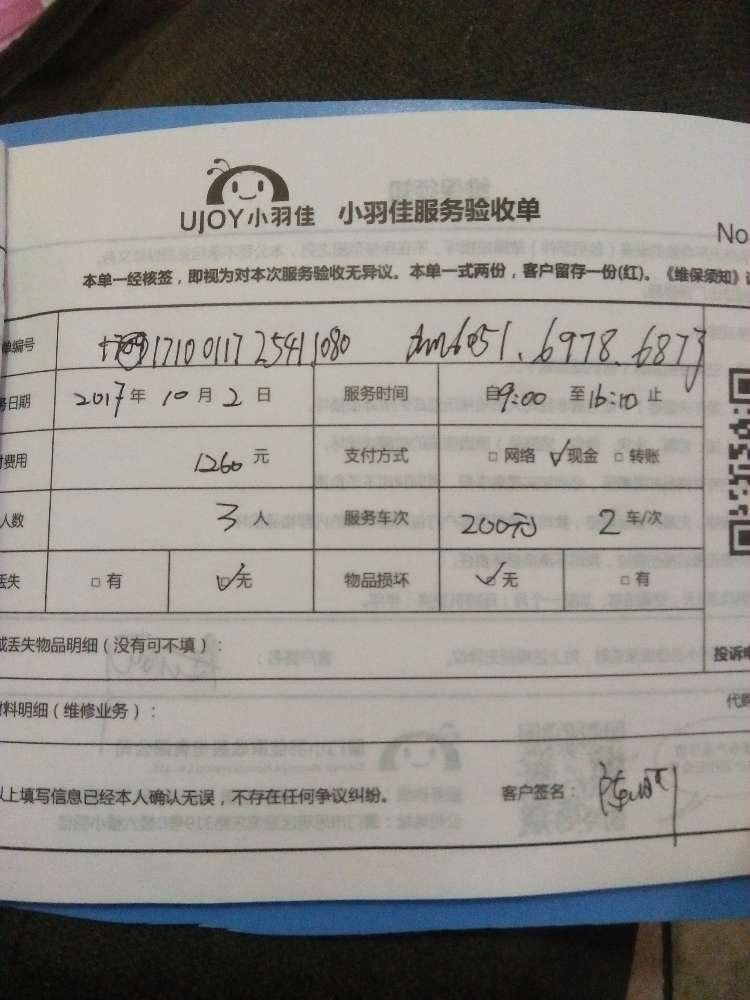 UJOY小羽佳 小羽佳服务验收单
No
本单一经核签，即视为对本次服务验收无异议。本单一式两份，客户留存一份(红)。《维保须知》
单编号 17100117 2541.080 6051.6978.6873
务日期 2017年 10月 2日 服务时间 自9:00 至16:10止
付费用 1260元 支付方式 □网络 ☑现金 □转账
人数 3人 服务车次 200元 2车/次
丢失 □有 ☑无 物品损坏 ☑无 □有
或丢失物品明细（没有可不填）：
投诉电
材料明细（维修业务）：
以上填写信息已经本人确认无误，不存在任何争议纠纷。 客户签名：